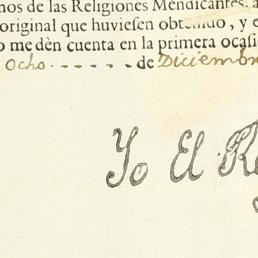 nos de las Religiones Mendicantes, a
original que huviesen obtenido, y e
o me dèn cuenta en la primera ocasi
Ocho . - . - . - . de Diciembr
Yo El Re